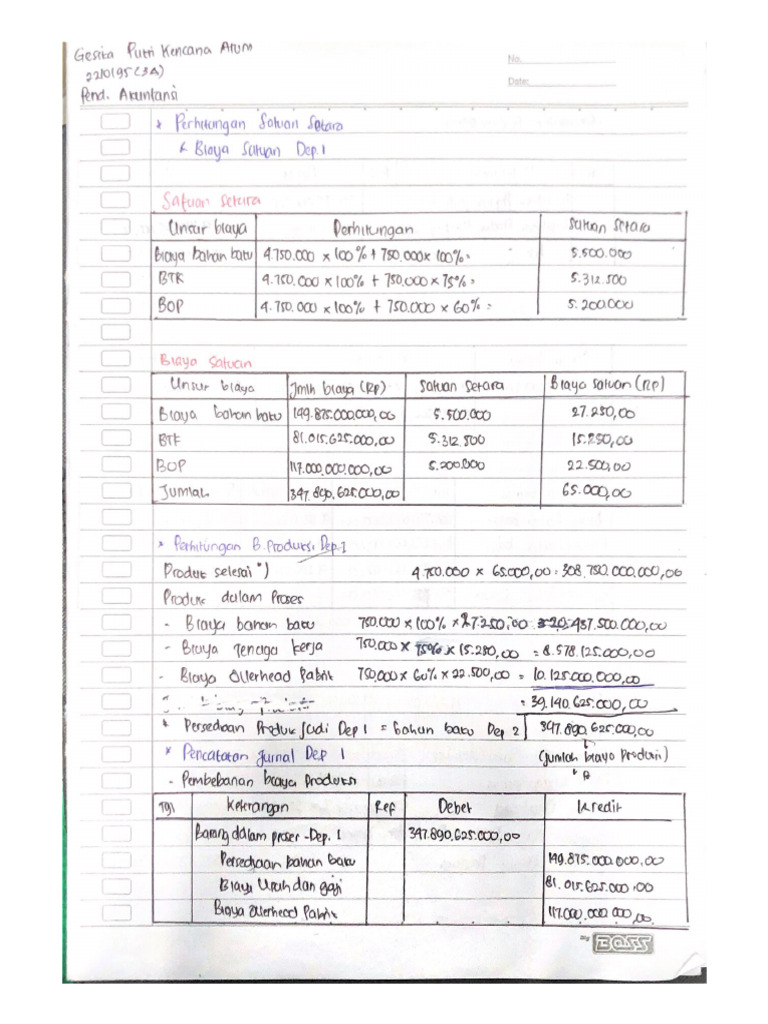 Gesita Putri Kencana Arum
220195 (3A)
Pend. Akuntansi
No.
Date:
* Perhitungan Satuan Setara
* Biaya Satuan Dep. 1
Satuan Setara
Unsur biaya Perhitungan Satuan Setara
Biaya bahan baku 4.750.000 x 100% + 750.000 x 100% = 5.500.000
BTK 4.750.000 x 100% + 750.000 x 75% = 5.312.500
BOP 4.750.000 x 100% + 750.000 x 60% = 5.200.000
Biaya Satuan
Unsur biaya Jmlh biaya (Rp) Satuan Setara Biaya satuan (Rp)
Biaya bahan baku 149.875.000.000,00 5.500.000 27.250,00
BTK 81.015.625.000,00 5.312.500 15.250,00
BOP 117.000.000.000,00 5.200.000 22.500,00
Jumlah 347.890.625.000,00 65.000,00
* Perhitungan B. Produksi Dep. 1
Produk selesai *) 4.750.000 x 65.000,00 = 308.750.000.000,00
Produk dalam Proses
- Biaya bahan baku 750.000 x 100% x 27.250,00 = 20.437.500.000,00
- Biaya Tenaga kerja 750.000 x 75% x 15.250,00 = 8.578.125.000,00
- Biaya Overhead Pabrik 750.000 x 60% x 22.500,00 = 10.125.000.000,00
= 39.140.625.000,00
* Persediaan Produk Jadi Dep 1 = bahan baku Dep 2 347.890.625.000,00
* Pencatatan Jurnal Dep 1 (Jumlah biaya Produksi)
- Pembebanan biaya Produksi
Tgl Keterangan Ref Debet Kredit
Barang dalam proses - Dep. 1 347.890.625.000,00
Persediaan bahan baku 149.875.000.000,00
Biaya Upah dan gaji 81.015.625.000,00
Biaya Overhead Pabrik 117.000.000.000,00
My BOSS